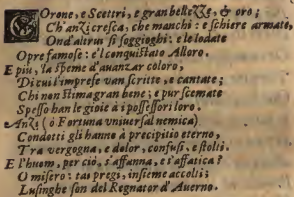 COrone, e Scettri, e gran bellezze, & oro
Ch'anzi cresca, che manchi: e schiere armate,
Ond'altrui si soggioghi: e le lodate
Opre famose: e'l conquistato Alloro.
E più, la speme d'auanzar coloro.
Di cui l'imprese van scritte, e cantate;
Chi non stima gran bene; e pur scemate
Spesso han le gioie à i possessori loro.
Anzi (ò Fortuna vniuersal nemica)
Condotti gli hanno à precipitio eterno,
Tra vergogna, e dolor, confusi, e stolti.
E l'huom, per ciò, s'affanna, e s'affatica?
O misero: tai pregi, insieme accolti;
Lusinghe son del Regnator d'Auerno.